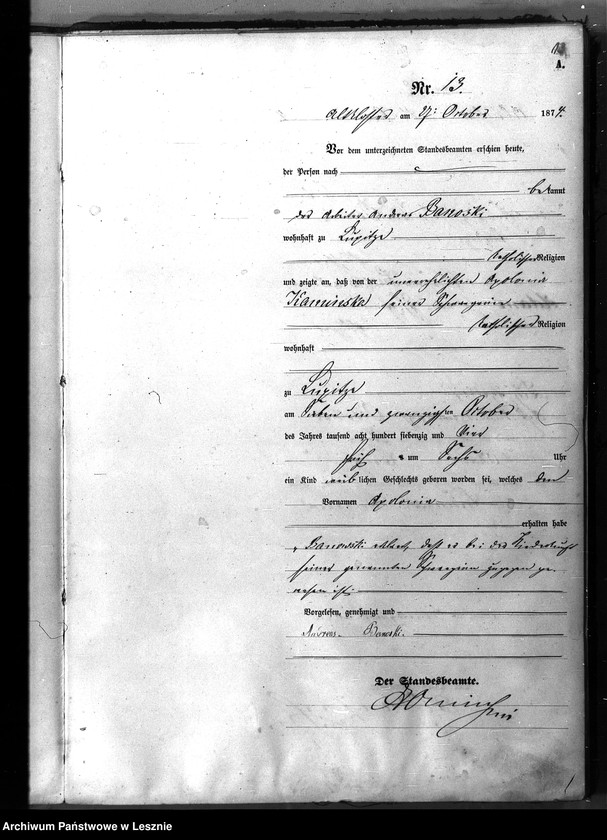 A.
Nr. 13.
Altkloster am 27. October 1874.
Vor dem unterzeichneten Standesbeamten erschien heute,
der Person nach
bekannt
der Arbeiter Andreas Banoski
wohnhaft zu Lupitze
katholischer Religion
und zeigte an, daß von der unverehelichten Apolonia
Kaminska seiner Schwägerin
katholischer Religion
wohnhaft
zu Lupitze
am Sieben und zwanzigsten October
des Jahres tausend acht hundert siebenzig und vier
früh um Sechs Uhr
ein Kind weiblichen Geschlechts geboren worden sei, welches den
Vornamen Apolonia
erhalten habe
Banowski erklärt, daß er bei der Niederkunft
seiner genannten Schwägerin zugegen ge-
wesen ist.
Vorgelesen, genehmigt und
Andreas Banoski.
Der Standesbeamte.
Archiwum Państwowe w Lesznie